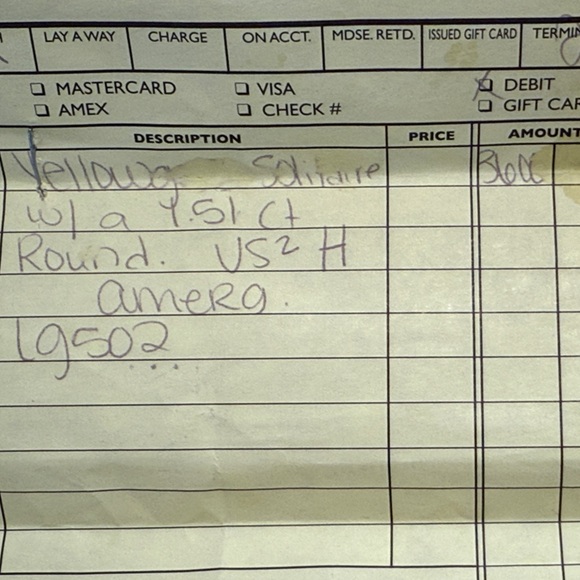 LAY AWAY CHARGE ON ACCT. MDSE. RETD. ISSUED GIFT CARD TERMIN
MASTERCARD VISA DEBIT
AMEX CHECK # GIFT CAR
DESCRIPTION PRICE AMOUNT
Yellow Solitaire
w/ a 1.51 Ct
Round. VS2 H
amerg.
lg502